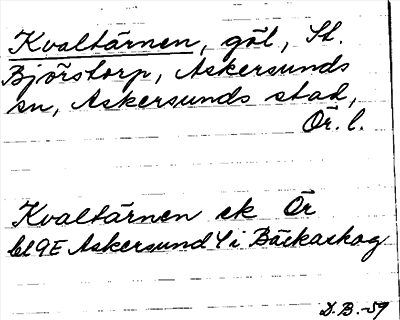 Kvaltärnen, göl, St.
Björstorp, Askersunds
sn, Askersunds stad,
Ör. l.
Kvaltärnen ek Ör
bl 9E Askersund 4 i Bäckaskog
D.B. -59